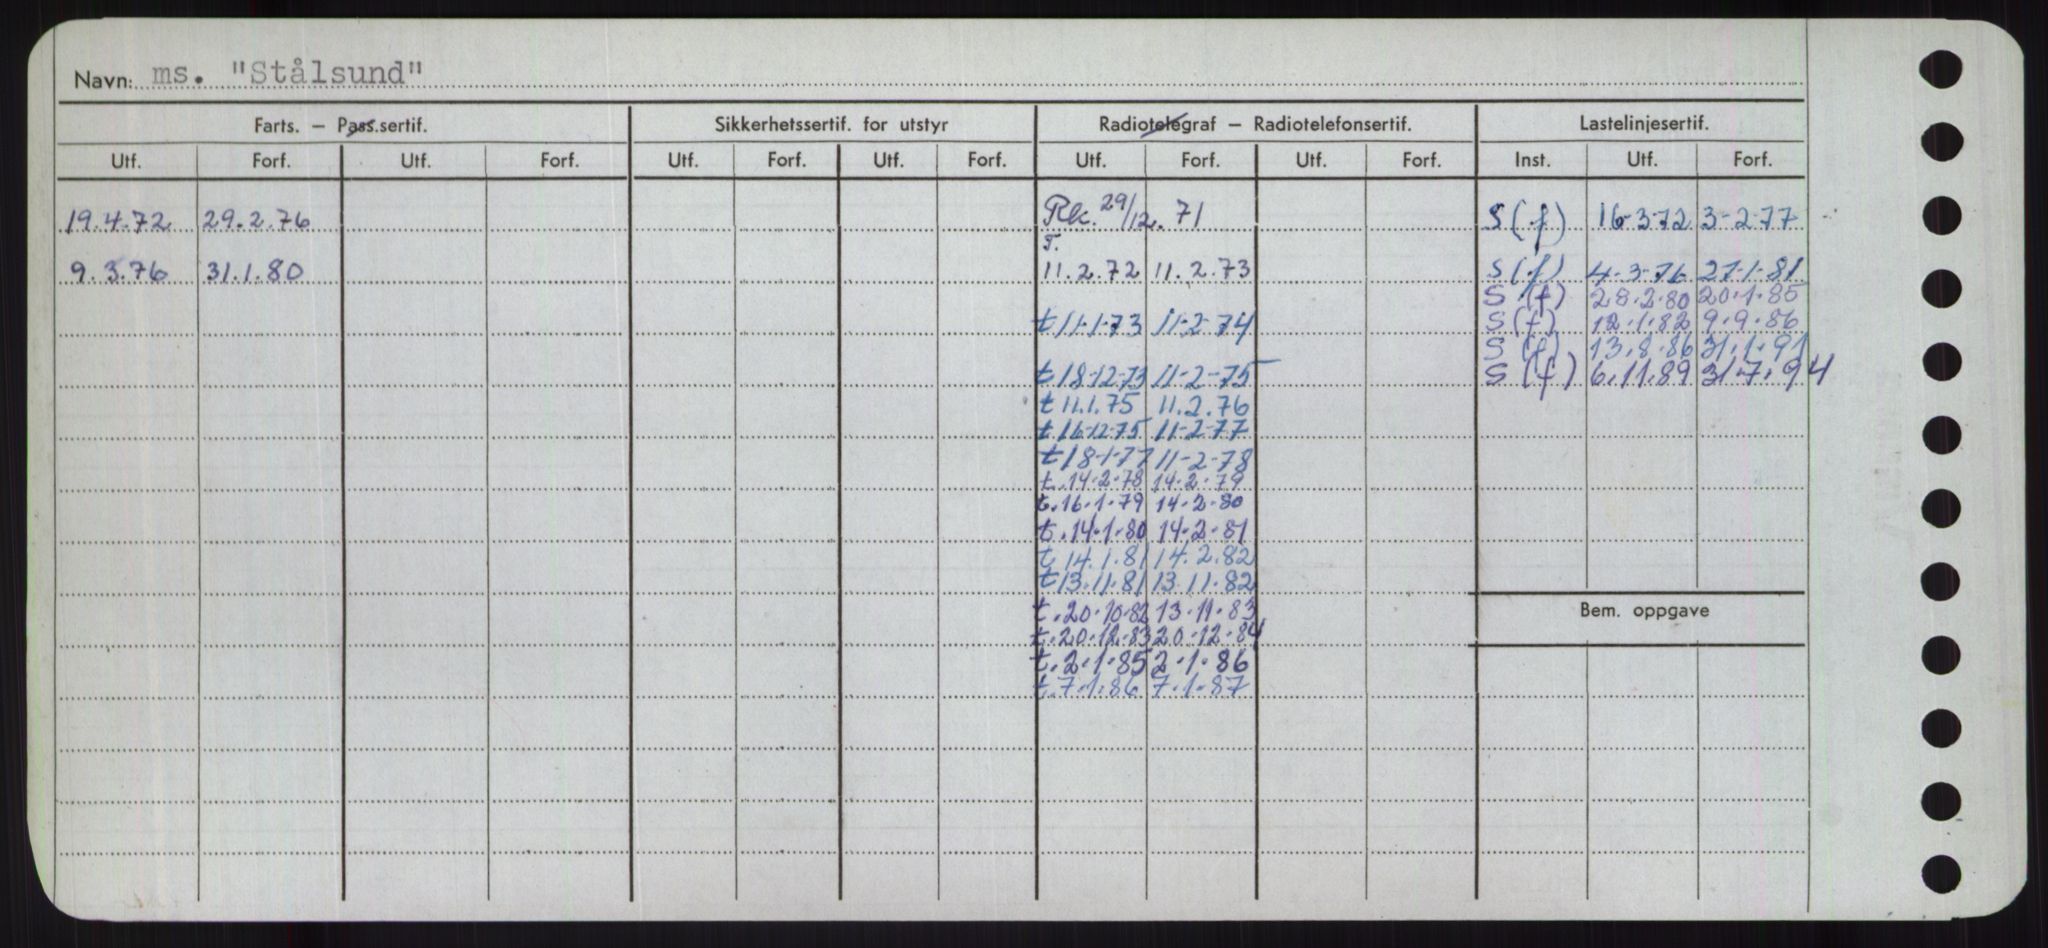 Navn: ms. "Stålsund"
Farts. – Pass.sertif. Sikkerhetssertif. for utstyr Radiotelegraf – Radiotelefonsertif. Lastelinjesertif.
Utf. Forf. Utf. Forf. Utf. Forf. Utf. Forf. Utf. Forf. Utf. Forf. Inst. Utf. Forf.
19.4.72 29.2.76 Rk. 29/12.71 S (f) 16-3-72 3-2-77
T.
9.3.76 31.1.80 11.2.72 11.2.73 S (f) 4-3-76 27-1-81
S (f) 28.2.80 20.1.85
t 11-1-73 11-2-74 S (f) 12.1.82 9.9.86
S (f) 13.8.86 31.1.91
t 18-12-73 11-2-75 S (f) 6.11.89 31.7.94
t 11.1.75 11.2.76
t 16-12-75 11-2-77
t 18-1-77 11-2-78
t. 14-2-78 14-2-79
t. 16-1-79 14-2-80
t. 14-1-80 14-2-81
t 14.1.81 14.2.82
t 13.11.81 13.11.82
t. 20-10-82 13-11-83
Bem. oppgave
t. 20-12-83 20-12-84
t. 2-1-85 2-1-86
t. 7.1.86 7.1.87